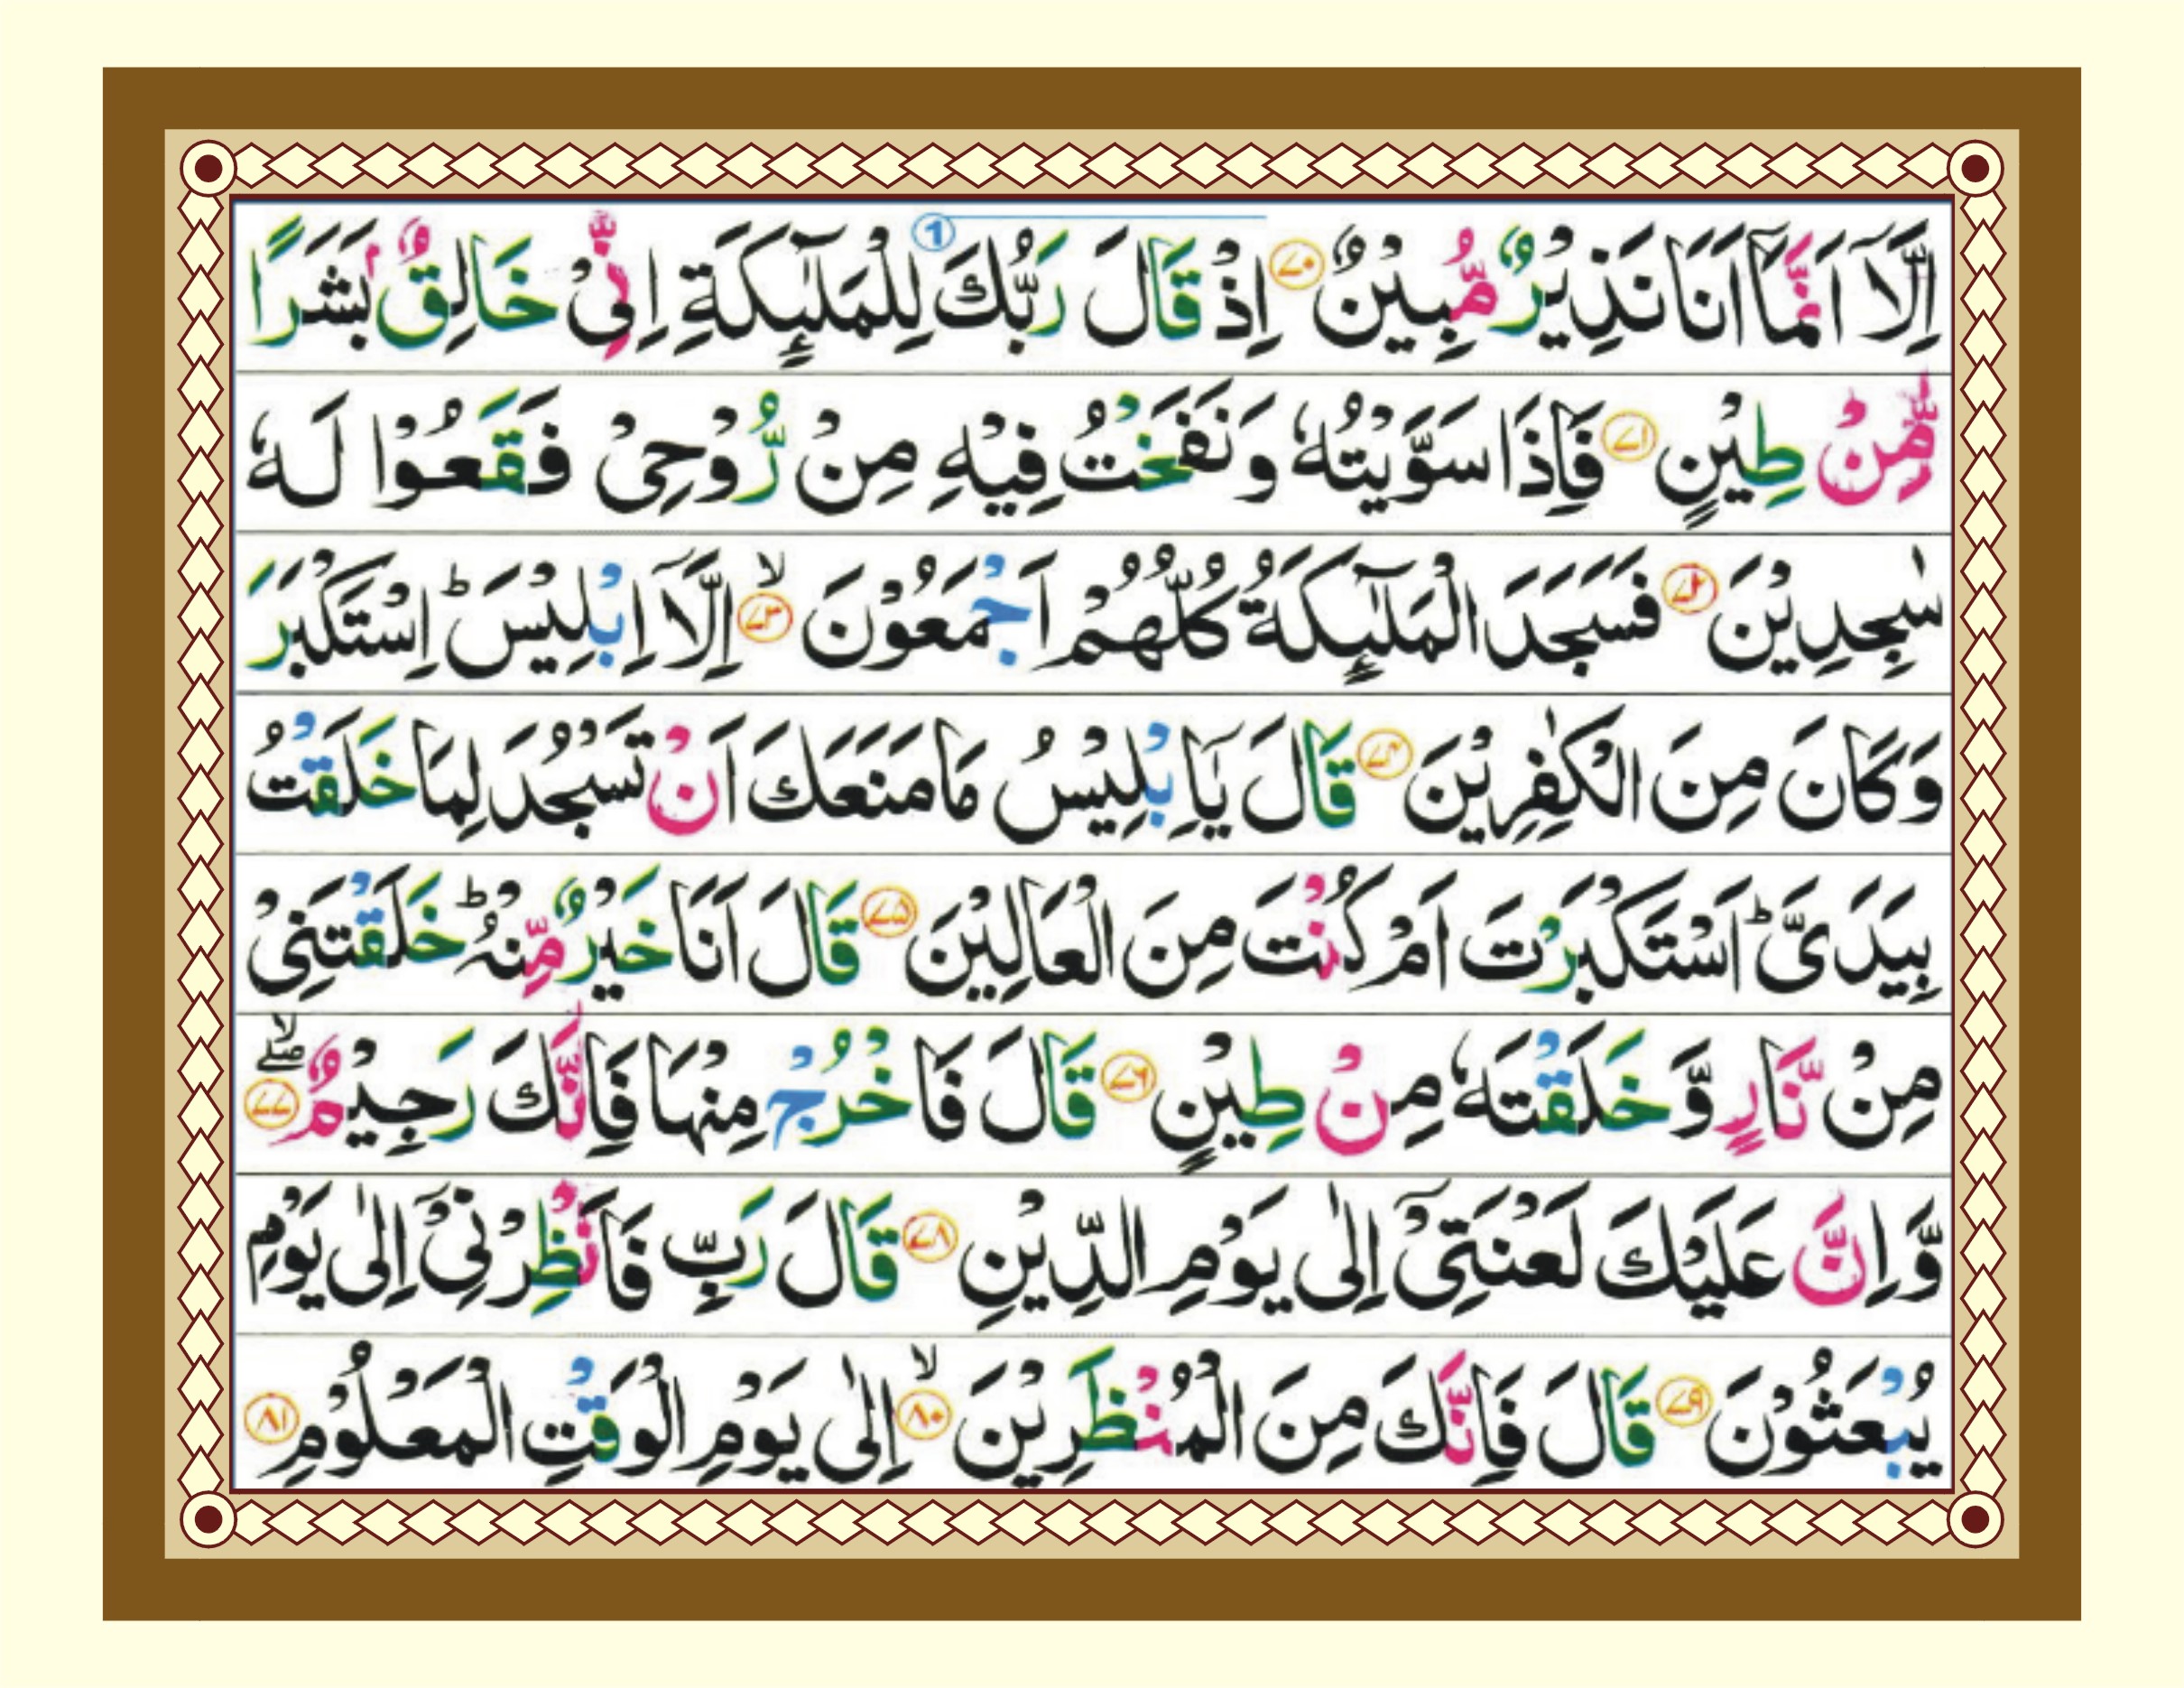 اِلَّاۤ اَنَّمَاۤ اَنَا نَذِيْرٌ مُّبِيْنٌ ۷۰ اِذْ قَالَ رَبُّكَ 1 لِلْمَلٰٓىِٕكَةِ اِنِّيْ خَالِقٌۢ بَشَرًا
مِّنْ طِيْنٍ ۷۱ فَاِذَا سَوَّيْتُهٗ وَنَفَخْتُ فِيْهِ مِنْ رُّوْحِيْ فَقَعُوْا لَهٗ
سٰجِدِيْنَ ۷۲ فَسَجَدَ الْمَلٰٓىِٕكَةُ كُلُّهُمْ اَجْمَعُوْنَ ۷۳ۙ اِلَّاۤ اِبْلِيْسَ ؕ اِسْتَكْبَرَ
وَكَانَ مِنَ الْكٰفِرِيْنَ ۷۴ قَالَ يٰۤاِبْلِيْسُ مَا مَنَعَكَ اَنْ تَسْجُدَ لِمَا خَلَقْتُ
بِيَدَيَّ ؕ اَسْتَكْبَرْتَ اَمْ كُنْتَ مِنَ الْعَالِيْنَ ۷۵ قَالَ اَنَا خَيْرٌ مِّنْهُ ؕ خَلَقْتَنِيْ
مِنْ نَّارٍ وَّخَلَقْتَهٗ مِنْ طِيْنٍ ۷۶ قَالَ فَاخْرُجْ مِنْهَا فَاِنَّكَ رَجِيْمٌ ۷۷ۖۙ
وَّاِنَّ عَلَيْكَ لَعْنَتِيْۤ اِلٰى يَوْمِ الدِّيْنِ ۷۸ قَالَ رَبِّ فَاَنْظِرْنِيْۤ اِلٰى يَوْمِ
يُبْعَثُوْنَ ۷۹ قَالَ فَاِنَّكَ مِنَ الْمُنْظَرِيْنَ ۸۰ۙ اِلٰى يَوْمِ الْوَقْتِ الْمَعْلُوْمِ ۸۱